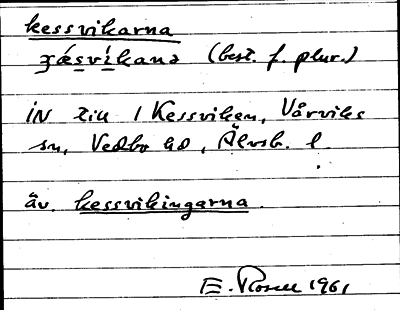 kessvikarna
χǽsvíkanə (best. f. plur.)
IN till / Kessviken, Vårviks
sn, Vedbo hd, Älvsb. l.
äv. kessvikingarna.
E. Rosell 1961